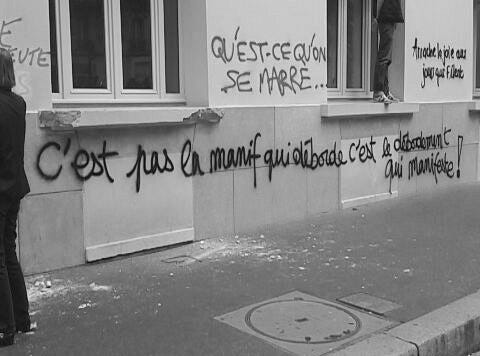 QU'EST-CE QU'ON
SE MARRE...
Arrache la joie aux
jours qui filent
C'est pas la manif qui déborde c'est le débordement
qui manifeste !